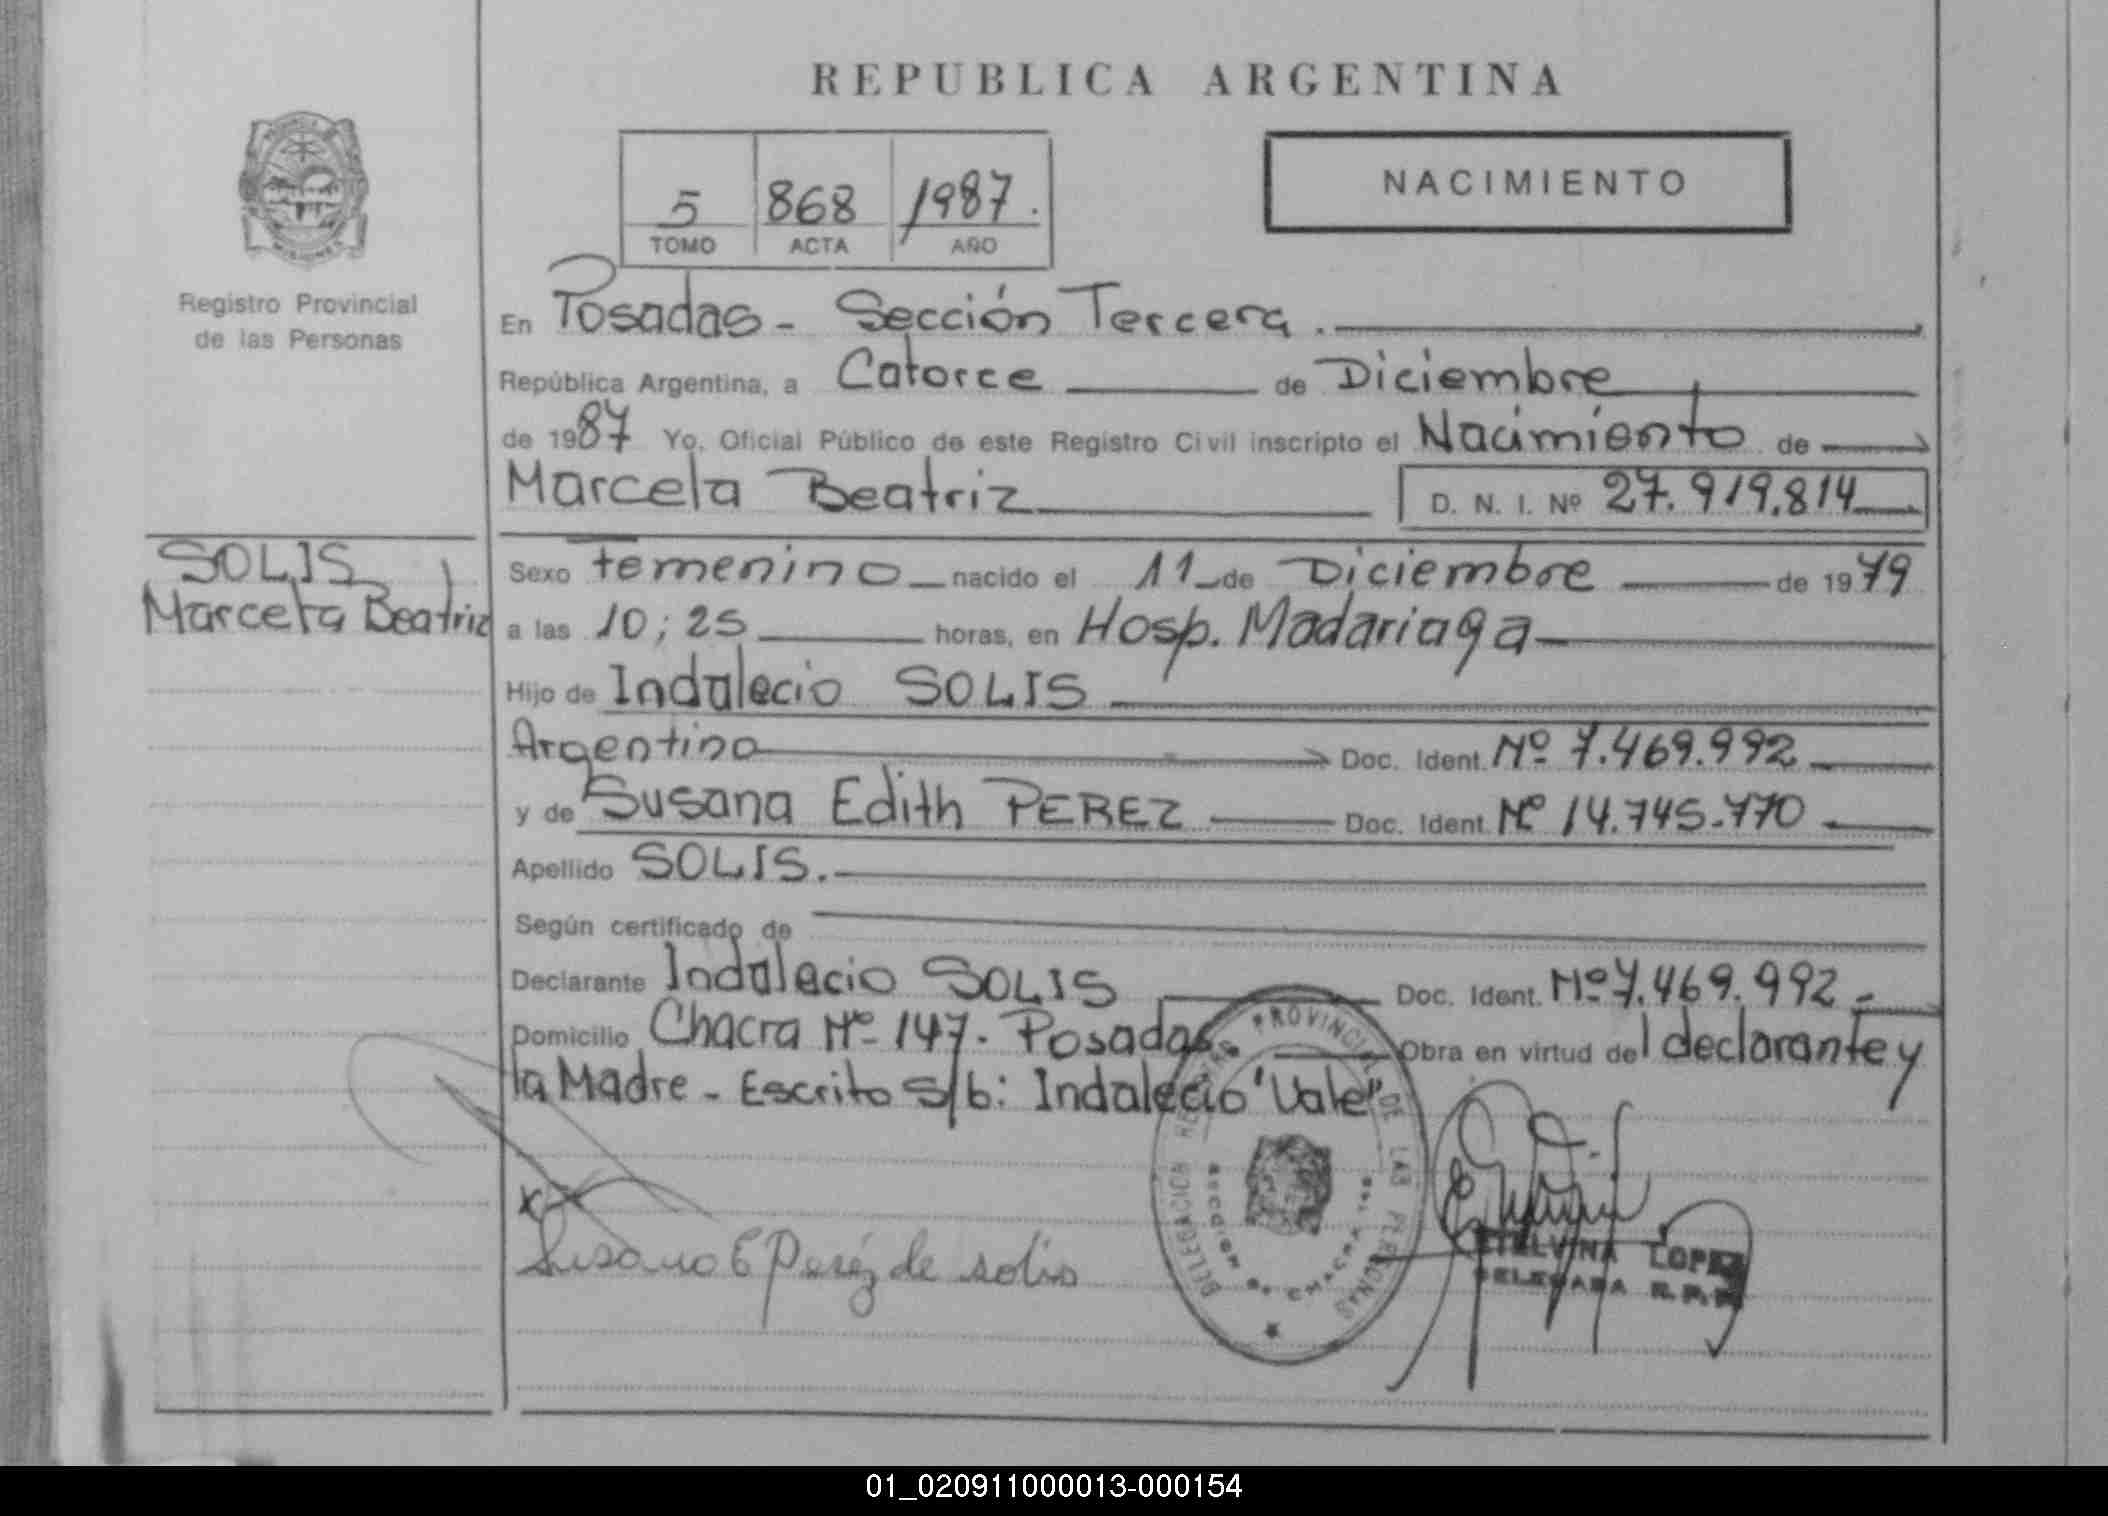 REPUBLICA ARGENTINA
NACIMIENTO
5 868 1987.
TOMO ACTA AÑO
Registro Provincial
de las Personas
En Posadas - Sección Tercera.
República Argentina, a Catorce de Diciembre
de 1987 Yo, Oficial Público de este Registro Civil inscripto el Nacimiento de
Marcela Beatriz D. N. I. Nº 27.919.814
SOLIS
Marcela Beatriz
Sexo femenino nacido el 11 de Diciembre de 1979
a las 10;25 horas, en Hosp. Madariaga
Hijo de Indalecio SOLIS
Argentino Doc. Ident. Nº 7.469.992
y de Susana Edith PEREZ Doc. Ident. Nº 14.745.770
Apellido SOLIS.
Según certificado de
Declarante Indalecio SOLIS Doc. Ident. Nº 7.469.992
Domicilio Chacra Nº 147. Posadas. Obra en virtud del declarante y
la Madre - Escrito s/b: Indalecio "Vale"
Susana E Peréz de solis
DELEGACION REGISTRO PROVINCIAL DE LAS PERSONAS
ETELVINA LOPEZ
DELEGADA R. P. P.
01_020911000013-000154